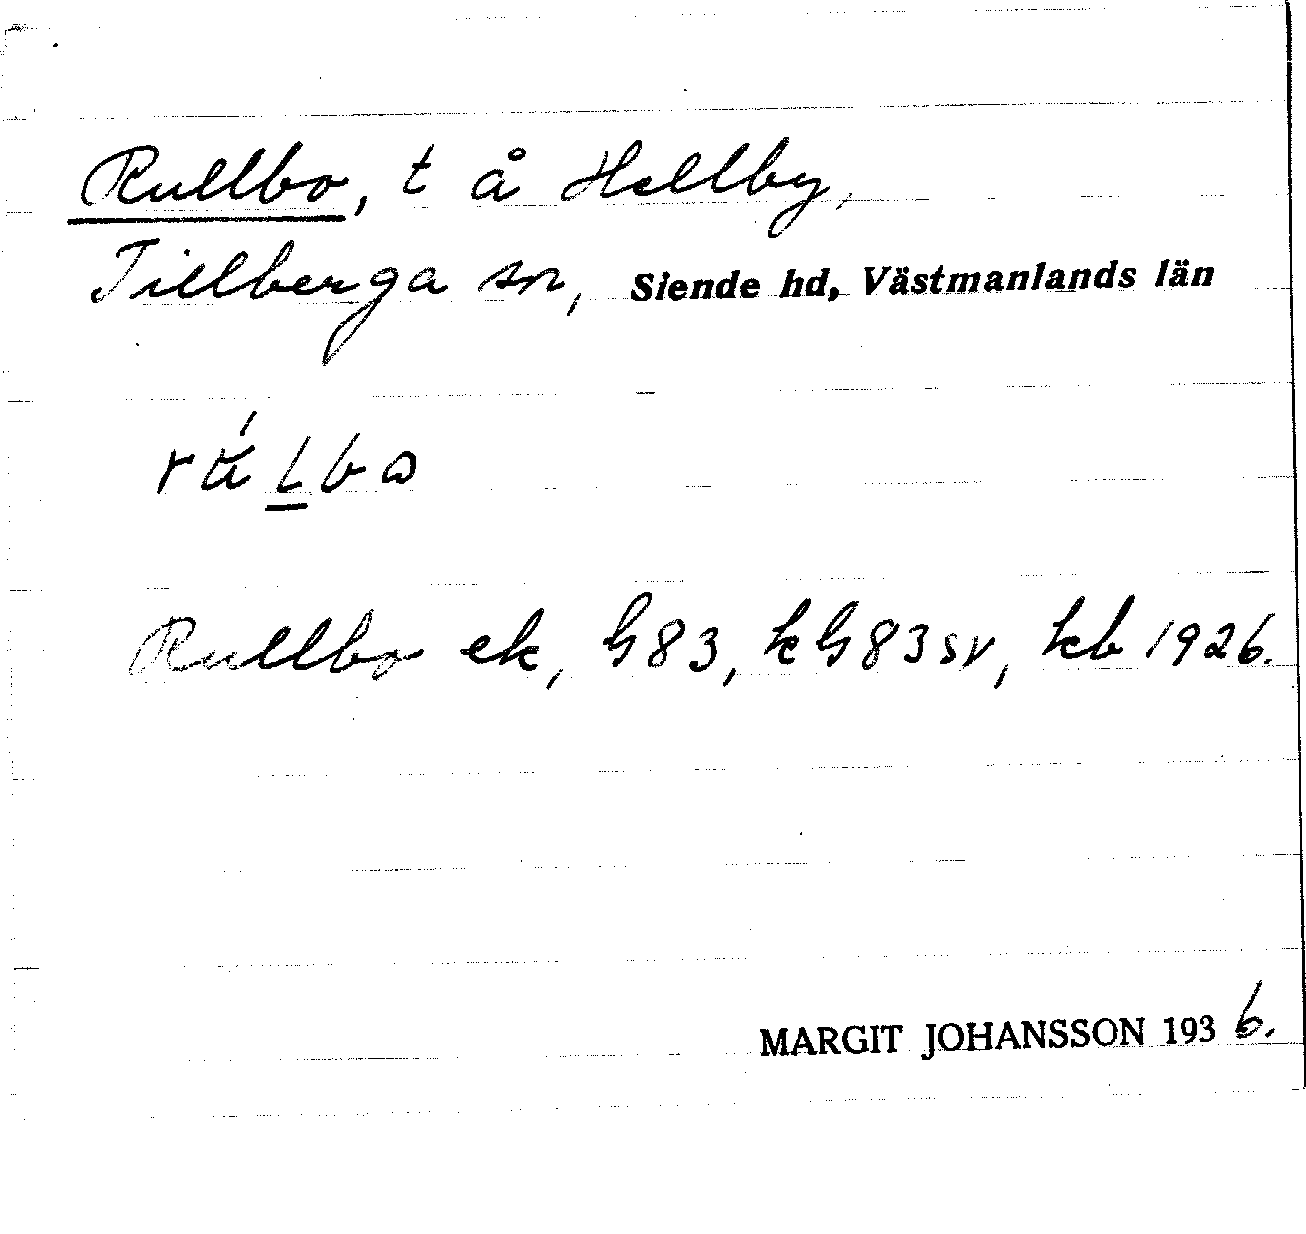 Rullbo, t å Hellby,
Tillberga sn, Siende hd, Västmanlands län
Rullbo ek, h83, kh83sv, kb 1926.
MARGIT JOHANSSON 1936.